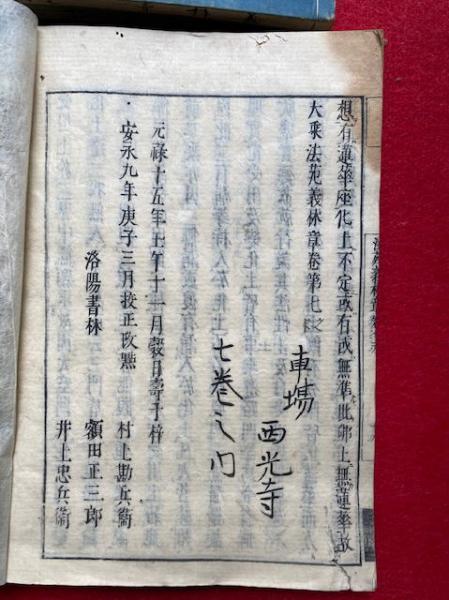 想有蓮華座化土不定或有或無準此第七無蓮華故
大乘法苑義林章卷第七
車場
西光寺
七巻之内
元祿十五年壬午十一月穀日壽于梓
安永九年庚子三月挍正改點
洛陽書林
村上勘兵衞
額田正三郎
井上忠兵衞